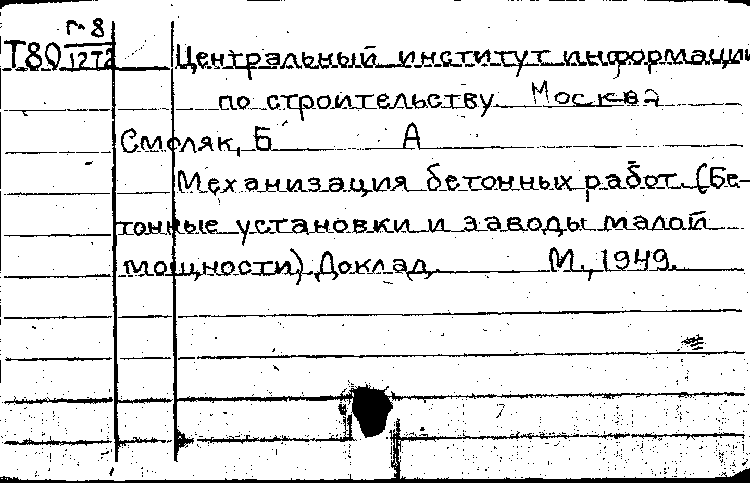 Г-8
Т80 1272 Центральный институт информации
по строительству. Москва
Смоляк, Б А
Механизация бетонных работ. (Бе-
тонные установки и заводы малой
мощности). Доклад. М., 1949.